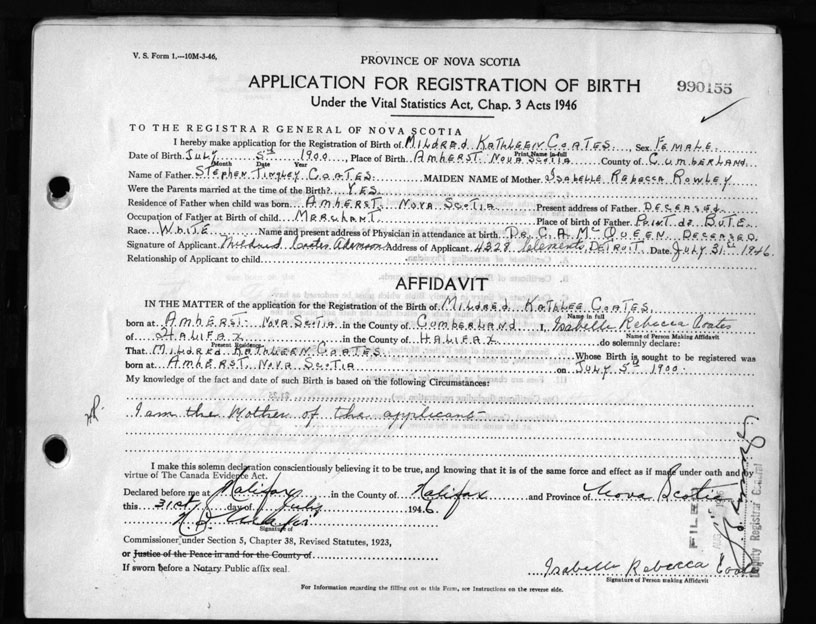 V. S. Form 1.—10M-3-46,
PROVINCE OF NOVA SCOTIA
APPLICATION FOR REGISTRATION OF BIRTH
990155
Under the Vital Statistics Act, Chap. 3 Acts 1946
TO THE REGISTRAR GENERAL OF NOVA SCOTIA
I hereby make application for the Registration of Birth of MILDRED KATHLEEN COATES, Sex FEMALE
Print Name in full
Date of Birth JULY 5th 1900, Place of Birth AMHERST NOVA SCOTIA County of CUMBERLAND
Month Date Year
Name of Father STEPHEN TINGLEY COATES MAIDEN NAME of Mother ISABELLE REBECCA ROWLEY
Were the Parents married at the time of the Birth? YES
Residence of Father when child was born AMHERST, NOVA SCOTIA Present address of Father DECEASED
Occupation of Father at Birth of child MERCHANT Place of birth of Father Point de BUTE
Race WHITE Name and present address of Physician in attendance at birth DR. C. A. McQUEEN DECEASED
Signature of Applicant Mildred Coates Address of Applicant 4328 DETROIT Date JULY 31st 1946
Relationship of Applicant to child
AFFIDAVIT
IN THE MATTER of the application for the Registration of Birth of MILDRED KATHLEE COATES
Name in full
born at AMHERST NOVA SCOTIA in the County of CUMBERLAND I, Isabelle Rebecca Coates
Name of Person Making Affidavit
of HALIFAX in the County of HALIFAX do solemnly declare:
Present Residence
That MILDRED KATHLEEN COATES Whose Birth is sought to be registered was
born at AMHERST, NOVA SCOTIA on JULY 5th 1900
My knowledge of the fact and date of such Birth is based on the following Circumstances:
I am the Mother of the applicant
I make this solemn declaration conscientiously believing it to be true, and knowing that it is of the same force and effect as if made under oath and by
virtue of The Canada Evidence Act.
Declared before me at Halifax in the County of Halifax and Province of Nova Scotia
this 31st day of July 1946
Signature of
Commissioner under Section 5, Chapter 38, Revised Statutes, 1923,
or Justice of the Peace in and for the County of
If sworn before a Notary Public affix seal.
Isabelle Rebecca Coates
Signature of Person making Affidavit
FILED
Deputy Registrar General
For Information regarding the filling out of this Form, see Instructions on the reverse side.